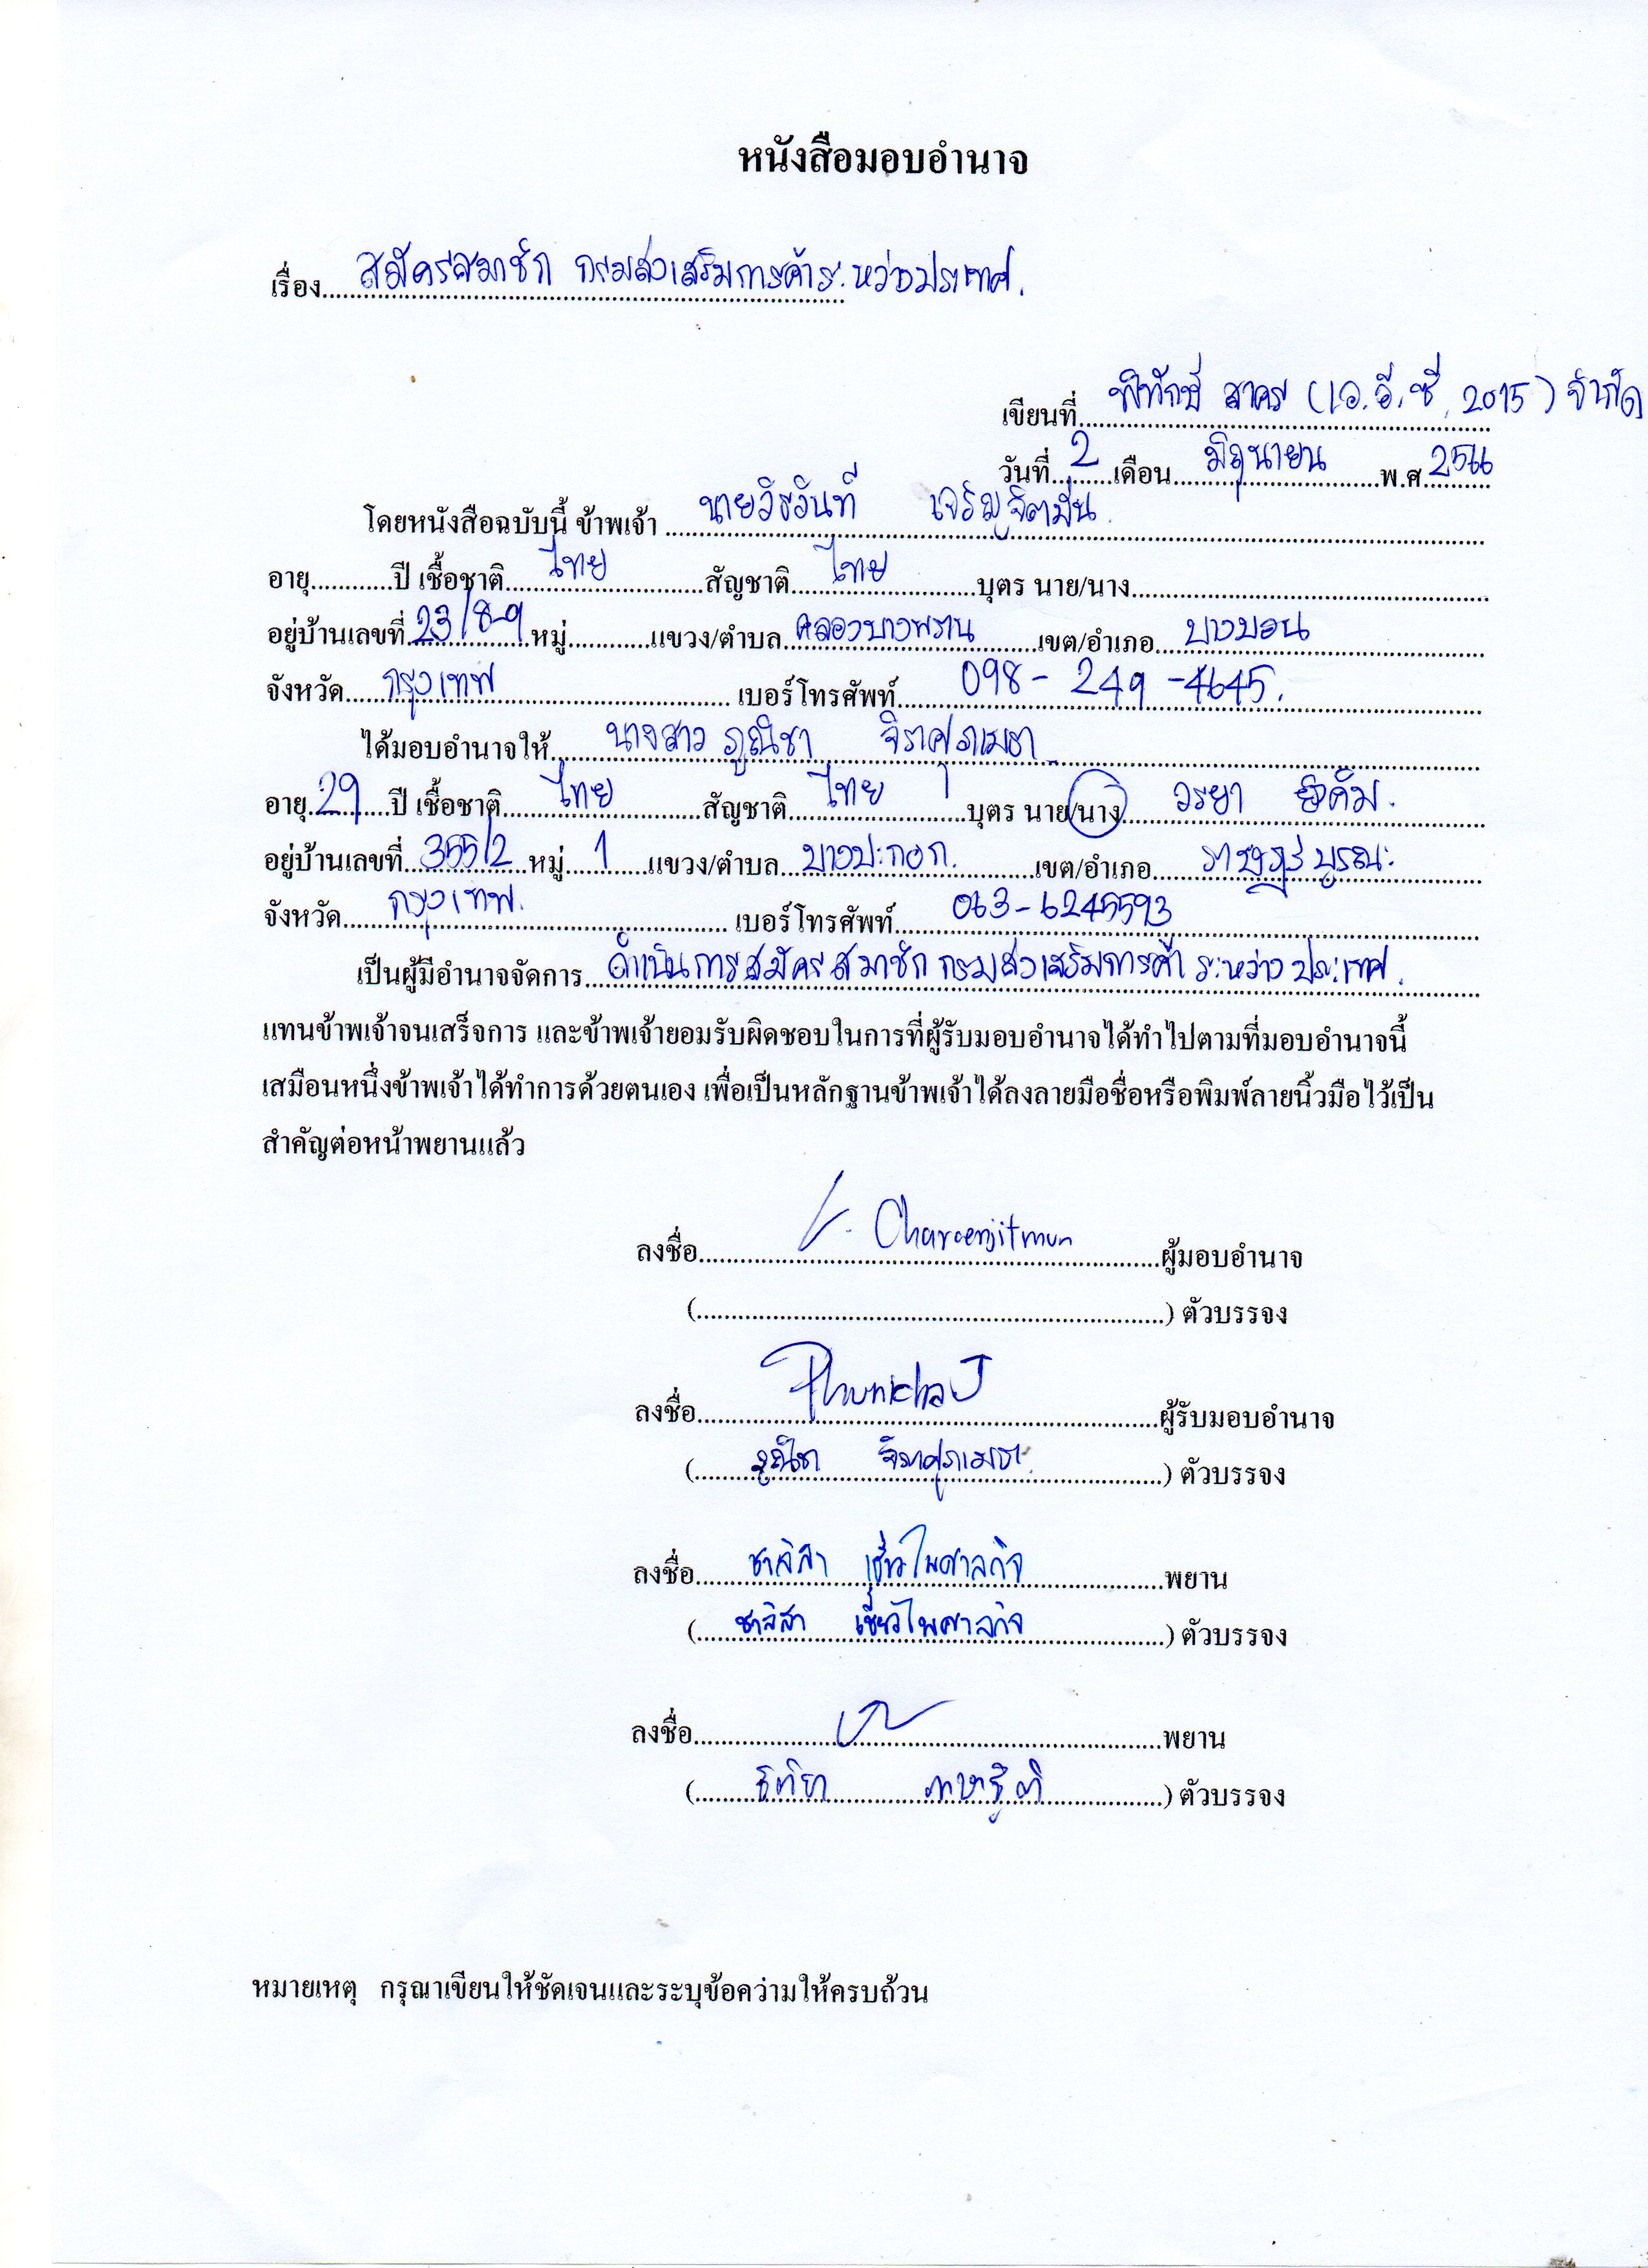 หนังสือมอบอำนาจ
เรื่อง สมัครสมาชิก กรมส่งเสริมการค้าระหว่างประเทศ.
เขียนที่ พิทักษ์ สาคร (เอ.อี.ซี. 2015) จำกัด
วันที่ 2 เดือน มิถุนายน พ.ศ. 2566
โดยหนังสือฉบับนี้ ข้าพเจ้า นายวิรวันท์ เจริญจิตมั่น
อายุ ปี เชื้อชาติ ไทย สัญชาติ ไทย บุตร นาย/นาง
อยู่บ้านเลขที่ 23/8-9 หมู่ แขวง/ตำบล คลองบางพราน เขต/อำเภอ บางบอน
จังหวัด กรุงเทพ เบอร์โทรศัพท์ 098-249-4645.
ได้มอบอำนาจให้ นางสาว ภูณิชา จิราศุภเมธา
อายุ 29 ปี เชื้อชาติ ไทย สัญชาติ ไทย บุตร นาย/นาง วรยา
อยู่บ้านเลขที่ 355/2 หมู่ 1 แขวง/ตำบล บางปะกอก. เขต/อำเภอ ราษฎร์บูรณะ
จังหวัด กรุงเทพ. เบอร์โทรศัพท์ 063-6245593
เป็นผู้มีอำนาจจัดการ ดำเนินการสมัครสมาชิก กรมส่งเสริมการค้าระหว่างประเทศ.
แทนข้าพเจ้าจนเสร็จการ และข้าพเจ้ายอมรับผิดชอบในการที่ผู้รับมอบอำนาจได้ทำไปตามที่มอบอำนาจนี้
เสมือนหนึ่งข้าพเจ้าได้ทำการด้วยตนเอง เพื่อเป็นหลักฐานข้าพเจ้าได้ลงลายมือชื่อหรือพิมพ์ลายนิ้วมือไว้เป็น
สำคัญต่อหน้าพยานแล้ว
ลงชื่อ Chareonjitmun ผู้มอบอำนาจ
( ) ตัวบรรจง
ลงชื่อ Phunicha J ผู้รับมอบอำนาจ
( ภูณิชา จิราศุภเมธา ) ตัวบรรจง
ลงชื่อ ชาลิสา เชี่ยวไพศาลกิจ พยาน
( ชาลิสา เชี่ยวไพศาลกิจ ) ตัวบรรจง
ลงชื่อ พยาน
( ) ตัวบรรจง
หมายเหตุ กรุณาเขียนให้ชัดเจนและระบุข้อความให้ครบถ้วน